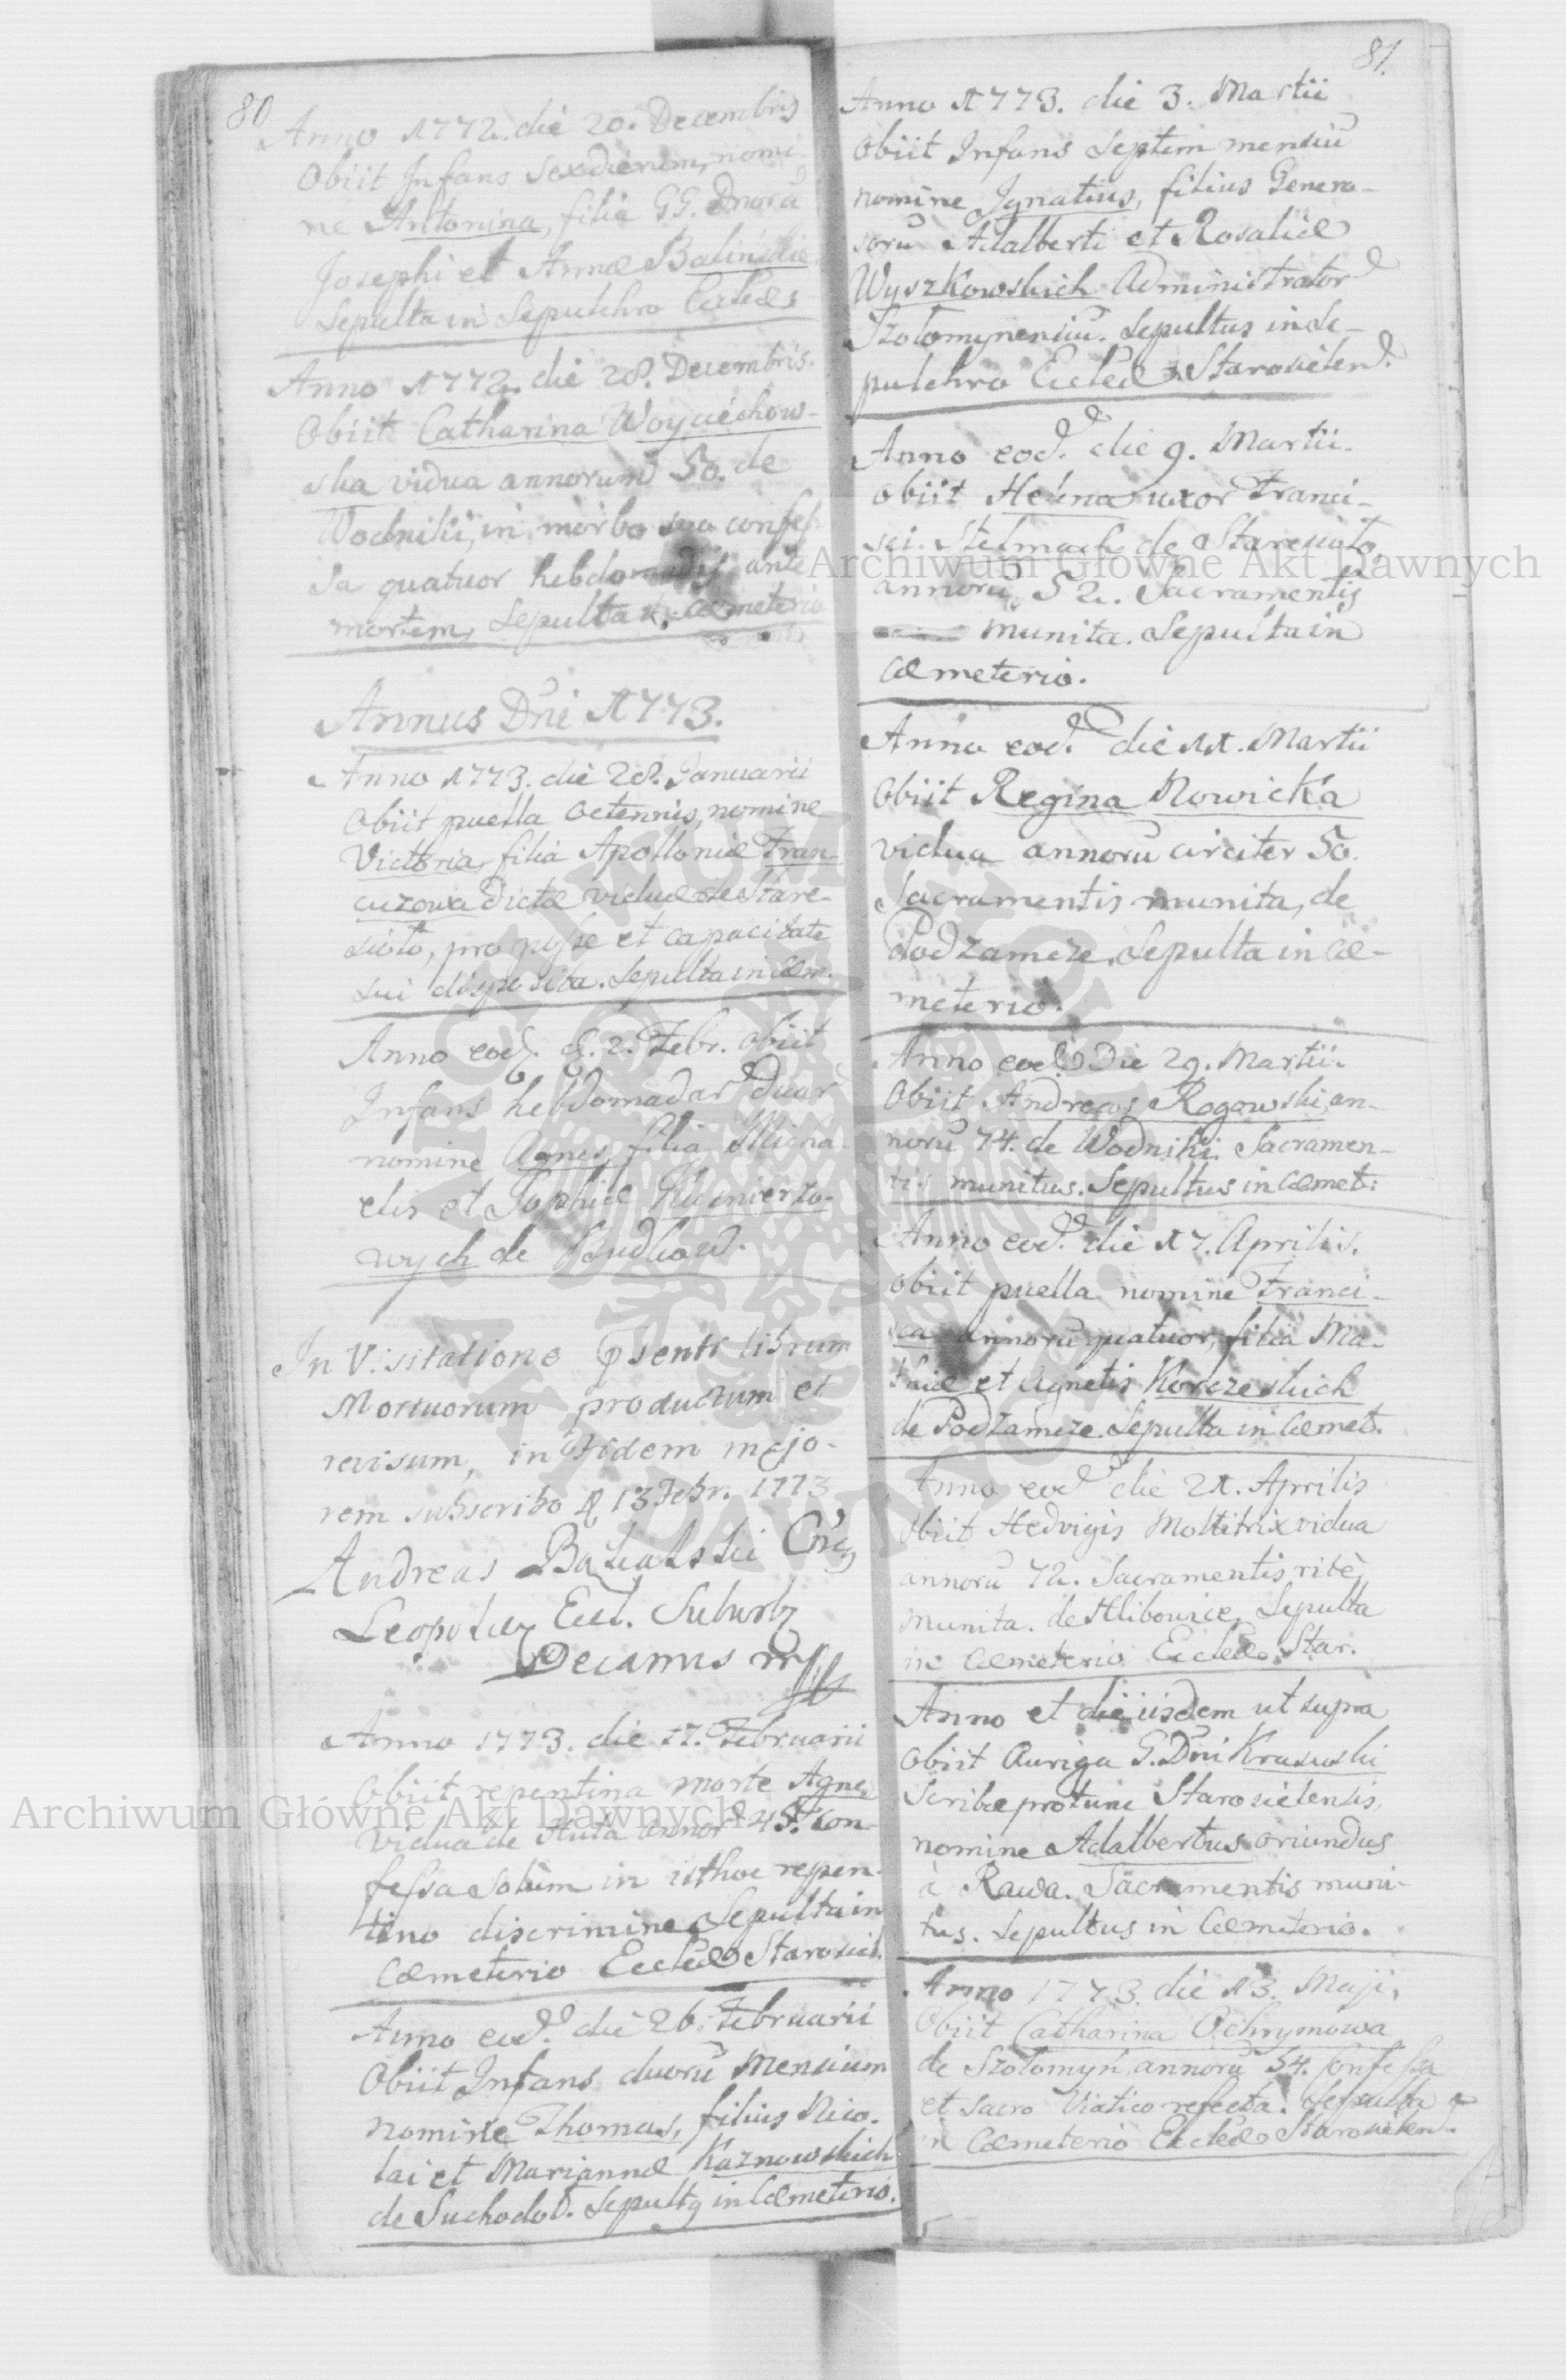 80
Anno 1772. die 20. Decembris
Obiit Infans sex dierum, nomi-
ne Antonina, filia GG. Dnorū
Josephi et Annæ Balinskie
Sepulta in Sepulchro Eccleæ
Anno 1772. die 28. Decembris.
Obiit Catharina Woyciechow-
ska vidua annorum 50. de
Wodniki, in morbo suo confes-
sa quatuor hebdomadis ante
mortem, Sepulta in Cæmeterio
Annus Dni 1773.
Anno 1773. die 28. Januarii
Obiit puella octennis, nomine
Victoria, filia Apolloniæ Fran
cuzowa dictæ viduæ de Stare-
sioło, pro posse et capacitate
sui disposita. Sepulta in Cæm.
Anno eod. d. 2. Febr. obiit
Infans hebdomadar duar
nomine Agnes, filia Micha-
elis et Sophiæ Kusnierzo-
wych de Budkow.
In Visitatione psenti librum
Mortuorum productum et
revisum, in fidem majo-
rem subscribo d 13 Febr. 1773
Andreas
Leopolien Eccl. Suburb
Decanus
Anno 1773. die 17. Februarii
Obiit repentina morte Agnes
vidua de Huta annor 45. con-
fessa solùm in isthoc repen-
tino discrimine, Sepulta in
Cæmeterio Eccleæ Starosiel.
Anno eod. die 26. Februarii
Obiit Infans duorū Mensium
nomine Thomas, filius Nico-
lai et Mariannæ Kaznowskich
de Suchodoł. Sepultq in Cæmeterio.
81.
Anno 1773. die 3. Martii
Obiit Infans Septem mensiū
nomine Ignatius, filius Genero-
sorū Adalberti et Rosaliæ
Wyszkowskich Administrator
Szołomynensiū. Sepultus in Se-
pulchro Eccleæ Starosielen.
Anno eod. die 9. Martii.
obiit Helena uxor Franci-
sci Stelmach de Staresioło,
annorū 52. Sacramentis
munita. Sepulta in
Cæmeterio.
Anno eod. die 11. Martii
Obiit Regina Nowicka
vidua annorū circiter 50.
Sacramentis munita, de
Podzamcze. Sepulta in Cæ-
meterio.
Anno eod. Die 29. Martii.
Obiit Andreas Rogowski an-
norū 74. de Wodniki. Sacramen-
tis munitus. Sepultus in Cæmet:
Anno eod. die 17. Aprilis.
obiit puella nomine Franci-
sca annorū quatuor, filia Ma-
thiæ et Agnetis Korczeskich
de Podzamcze. Sepulta in Cæmet.
Anno eod. die 21. Aprilis
Obiit Hedvigis Molitrix vidua
annorū 72. Sacramentis ritè
munita. de Hlibowice, Sepulta
in Cæmeterio Eccleæ Star.
Anno et die iisdem ut supra
Obiit Auriga G. Dni Krasuski
Scribæ protunc Starosielensis,
nomine Adalbertus oriundus
à Rawa. Sacramentis muni-
tus. Sepultus in Cæmeterio.
Anno 1773. die 13. Maji,
Obiit Catharina Ochrymowa
de Szołomyń, annorū 54. Confessa
et Sacro Viatico refecta. Sepulta
in Cæmeterio Eccleæ Starosielen.
Archiwum Główne Akt Dawnych
Archiwum Główne Akt Dawnych
ARCHIWUM GŁÓWNE AKT DAWNYCH